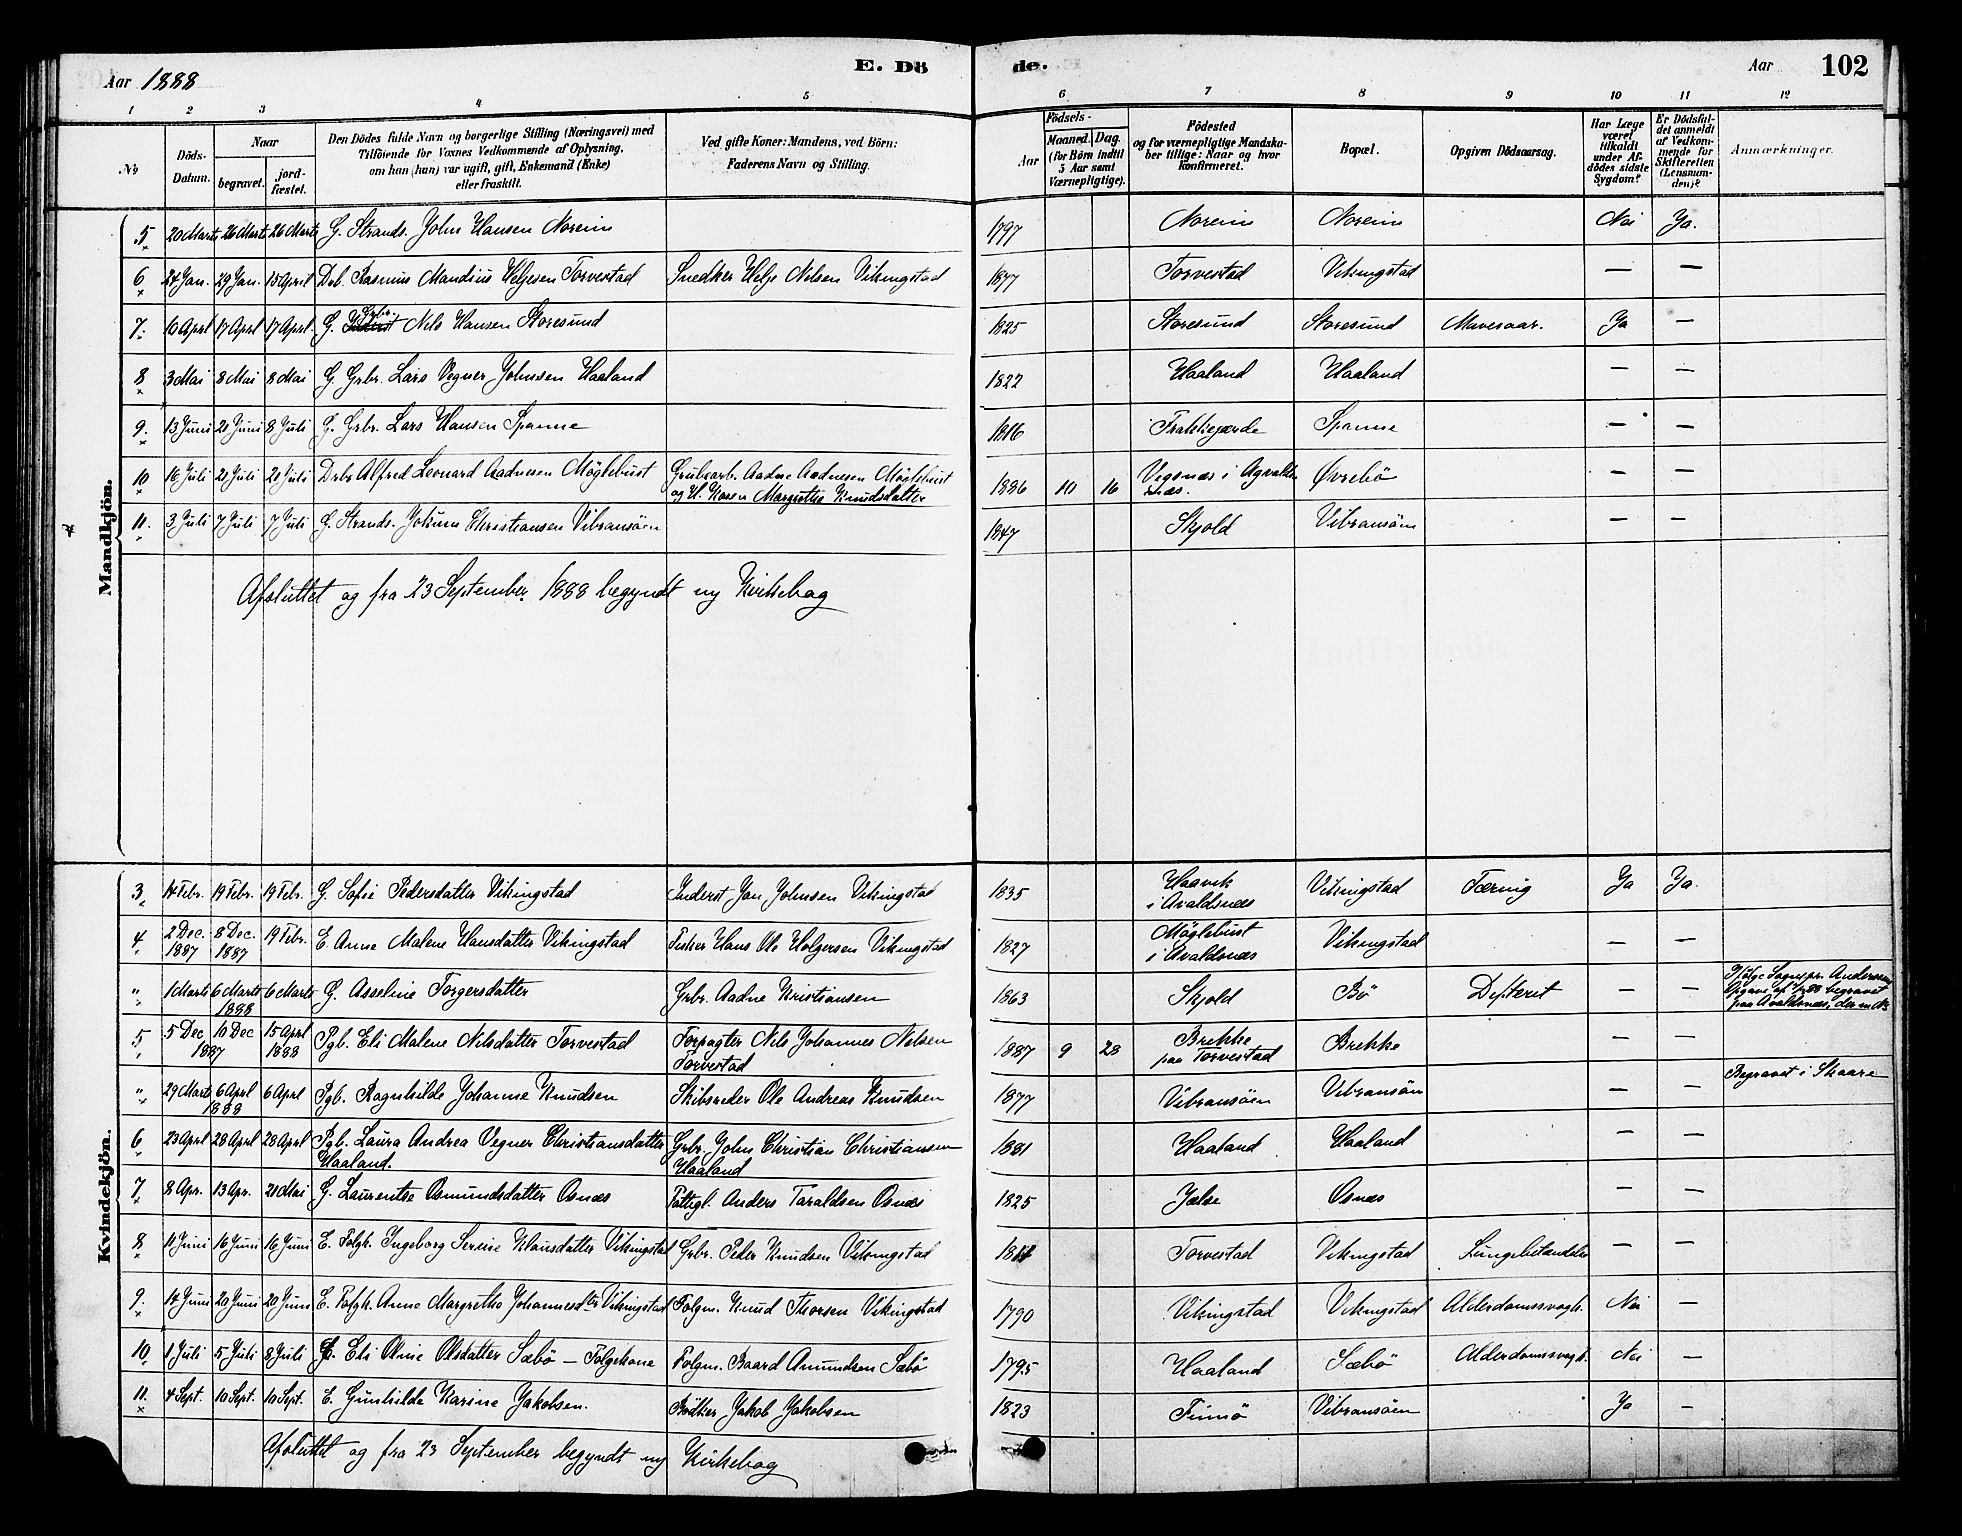 Aar 1888 E. Dö de. Aar 102
1 2 3 4 5 6 7 8 9 10 11 12
No. Döds-Datum. Naar begravet. jord-fæstet. Den Dödes fulde Navn og borgerlige Stilling (Næringsvei) med Tilföiende for Voxnes Vedkommende af Oplysning, om han (hun) var ugift, gift, Enkemand (Enke) eller fraskilt. Ved gifte Koner: Mandens, ved Börn: Faderens Navn og Stilling. Födsels- Aar Maaned. Dag. (for Börn indtil 5 Aar samt Værnepligtige). Födested og for værnepligtige Mandskaber tillige: Naar og hvor konfirmeret. Bopæl. Opgiven Dödsaarsag. Har Læge været tilkaldt under Afdödes sidste Sygdom? Er Dödsfaldet anmeldt af Vedkommende for Skifteretten (Lensmanden)? Anmærkninger.
Mandkjön.
5 20 Marts 26 Marts 26 Marts G. Strands. John Hansen Noreim 1797 Noreim Noreim Nei Ja.
6 24 Jan. 29 Jan. 15 April Drb. Rasmus Mandius Helgesen Torvestad Snedker Helge Nilsen Vikingstad 1877 Torvestad Vikingstad — —
7. 10 Aprl 17 Aprl 17 Aprl. G. Grbr. Nils Hansen Storesund 1825 Storesund Storesund Mavesaar. Ja —
8 3 Mai 8 Mai 8 Mai G. Grbr. Lars Vegner Johnsen Haaland 1822 Haaland Haaland — —
9. 13 Juni 21 Juni 8 Juli G. Grbr. Lars Hansen Spanne 1816 Spanne — —
10 16 Juli 21 Juli 21 Juli Drb. Alfred Leonard Aadnesen Möglebust Grubearb. Aadne Aadnesen Möglebust
og H. Karen Margrethe Knudsdatter 1886 10 16 Øvrebö — —
11. 3 Juli 7 Juli 7 Juli G. Strands. Jokum Christiansen Vibransöen 1847 Skjold Vibransöen — —
Afsluttet og fra 23 September 1888 begyndt ny Kirkebog
Kvindekjön.
3 14 Febr. 19 Febr. 19 Febr. G. Sofie Pedersdatter Vikingstad Inderst Jan Johnsen Vikingstad 1835 Haavik
i Avaldsnæs Vikingstad Tæring Ja Ja.
4. 2 Dec. 1887 8 Dec. 1887 19 Febr. E. Anne Malene Hansdatter Vikingstad Fisker Hans Ole Holgersen Vikingstad 1827 Möglebust
i Avaldsnæs Vikingstad — —
" 1 Marts 6 Marts 1888 6 Marts G. Asseline Torgersdatter Grbr. Aadne Kristiansen 1863 Skjold Bö Difterit — — Ifölge Sognepr. Andersens
Opgave begravet
paa Avaldsnæs
5 5 Dec 10 Dec 1887 15 Aprl 1888 Pgb. Eli Malene Nilsdatter Torvestad Forpagter Nils Johannes Nilsen
Torvestad 1887 9 28 Brekke
paa Torvestad Brekke — —
" 29 Marts 6 Aprl 1888 6 Aprl Pgb. Ragnhilde Johanne Knudsen Skibsreder Ole Andreas Knudsen 1877 Vibransöen Vibransöen — — Begravet i Skaare
6 23 Aprl 28 Aprl 28 Aprl Pgb. Laura Andrea Vegner Christiansdatter
Haaland. Grbr. John Christian Christiansen
Haaland 1881 Haaland Haaland — —
7 8 Apr. 13 Apr. 21 Mai G. Laurentse Osmundsdatter Osnæs Fattigl. Anders Taraldsen Osnæs 1825 Jelse Osnæs — —
8 11 Juni 16 Juni 16 Juni E. Folgk. Ingeborg Serine Klausdatter Vikingstad Grbr. Peder Knudsen Vikingstad Torvestad Vikingstad Lungebetændelse — —
9. 14 Juni 20 Juni 20 Juni E. Folgk. Anne Margrethe Johannesdter Vikingstad Folgm. Knud Thorsen Vikingstad 1790 Vikingstad Vikingstad Alderdomssvagh. Nei —
10 1 Juli 5 Juli 8 Juli G. Eli Oline Olsdatter Sæbö — Folgekone Folgm. Baard Amundsen Sæbö 1795 Haaland Sæbö Alderdomssvagh. Nei —
11. 4 Sept. 10 Sept. 10 Sept. E. Gunhilde Karine Jakobsen. Bödker Jakob Jakobsen 1823 Finnö Vibransöen Ja —
Afsluttet og fra 23 September begyndt ny Kirkebog